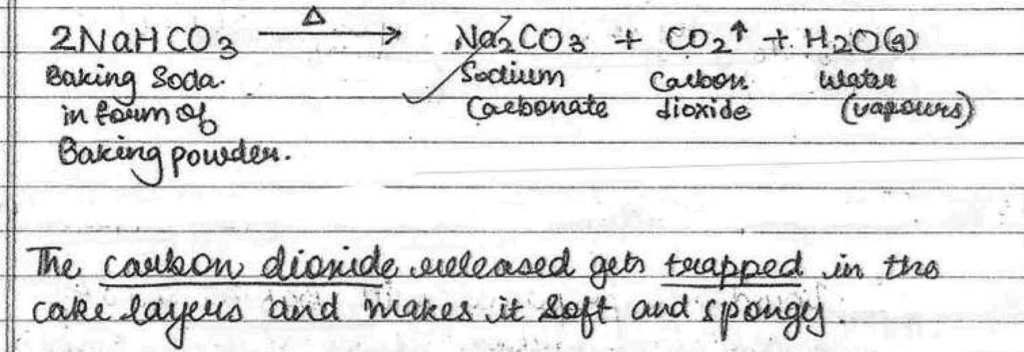 2NaHCO3 —Δ→ Na2CO3 + CO2↑ + H2O(g)
Baking Soda. Sodium Carbon Water
in form of Carbonate dioxide (vapours)
Baking powder.
The carbon dioxide released gets trapped in the
cake layers and makes it soft and spongy.